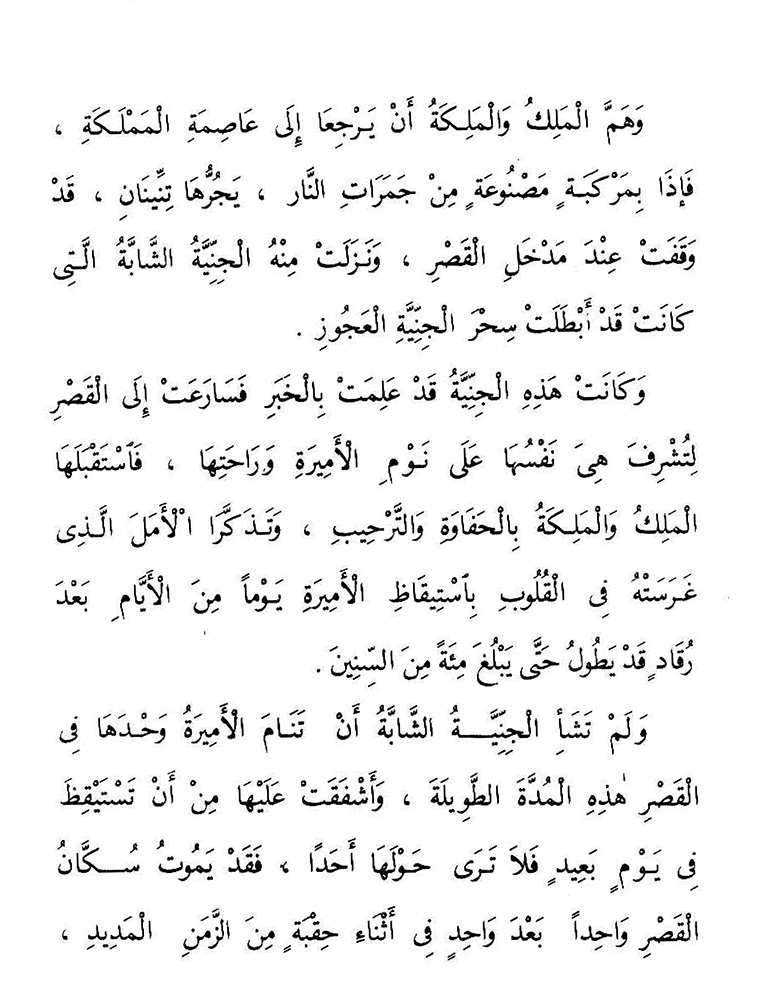 وَهَمَّ الْمَلِكُ وَالْمَلِكَةُ أَنْ يَرْجِعَا إِلَى عَاصِمَةِ الْمَمْلَكَةِ ،
فَإِذَا بِمَرْكَبَةٍ مَصْنُوعَةٍ مِنْ جَمَرَاتِ النَّار ، يَجُرُّهَا تِنِّينَانِ ، قَدْ
وَقَفَتْ عِنْدَ مَدْخَلِ الْقَصْرِ ، وَنَزَلَتْ مِنْهُ الْجِنِّيَّةُ الشَّابَّةُ الَّتِى
كَانَتْ قَدْ أَبْطَلَتْ سِحْرَ الْجِنِّيَّةِ الْعَجُوزِ .
وَكَانَتْ هَذِهِ الْجِنِّيَّةُ قَدْ عَلِمَتْ بِالْخَبَرِ فَسَارَعَتْ إِلَى الْقَصْرِ
لِتُشْرِفَ هِىَ نَفْسُهَا عَلَى نَوْمِ الْأَمِيرَةِ وَرَاحَتِهَا ، فَٱسْتَقْبَلَهَا
الْمَلِكُ وَالْمَلِكَةُ بِالْحَفَاوَةِ وَالتَّرْحِيبِ ، وَتَذَكَّرَا الْأَمَلَ الَّذِى
غَرَسَتْهُ فِى الْقُلُوبِ بِٱسْتِيقَاظِ الْأَمِيرَةِ يَوْماً مِنَ الْأَيَّامِ بَعْدَ
رُقَادٍ قَدْ يَطُولُ حَتَّى يَبْلُغَ مِئَةً مِنَ السِّنِينَ .
وَلَمْ تَشَأِ الْجِنِّيَّةُ الشَّابَّةُ أَنْ تَنَامَ الْأَمِيرَةُ وَحْدَهَا فِى
الْقَصْرِ هٰذِهِ الْمُدَّةَ الطَّوِيلَةَ ، وَأَشْفَقَتْ عَلَيْهَا مِنْ أَنْ تَسْتَيْقِظَ
فِى يَوْمٍ بَعِيدٍ فَلاَ تَرَى حَوْلَهَا أَحَدًا ، فَقَدْ يَمُوتُ سُكَّانُ
الْقَصْرِ وَاحِداً بَعْدَ وَاحِدٍ فِى أَثْنَاءِ حِقْبَةٍ مِنَ الزَّمَنِ الْمَدِيدِ ،